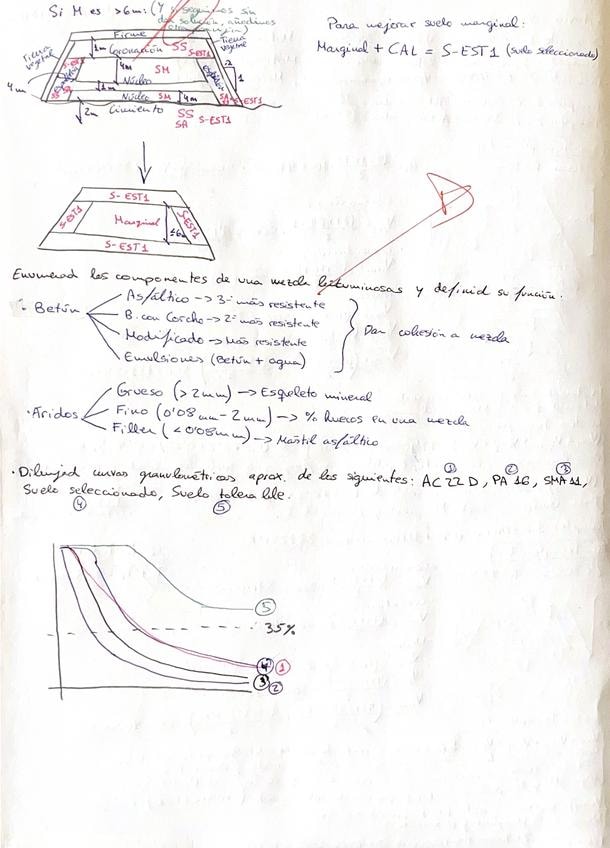 Si M es >6m: (Y seguimos sin
dar solución, añadimos
Para mejorar suelo marginal:
Marginal + CAL = S-EST1 (suelo seleccionado)
Firme
Tierra vegetal
Coronación SS S-EST1
1m
Tierra vegetal
SM
4m
2
1
4m
Núcleo
1m
Núcleo SM
4m
S-EST1
2m
Cimiento SS S-EST1
SA
S-EST1
S-EST1
Marginal
≤6m
S-EST1
S-EST1
Enumerad los componentes de una mezcla bituminosas y definid su función.
· Betún
Asfáltico -> 3º más resistente
B. con Corcho -> 2º más resistente
Modificado -> Más resistente
Emulsiones (Betún + agua)
Dan cohesión a mezcla
· Áridos
Grueso (>2mm) -> Esqueleto mineral
Fino (0'08mm - 2mm) -> % Huecos en una mezcla
Filler (<0'08mm) -> Mástil asfáltico
· Dibujad curvas granulométricas aprox. de los siguientes: AC 22 D, PA 16, SMA 11,
1 2 3
Suelo seleccionado, Suelo tolerable.
4 5
5
35%
4 1
3 2